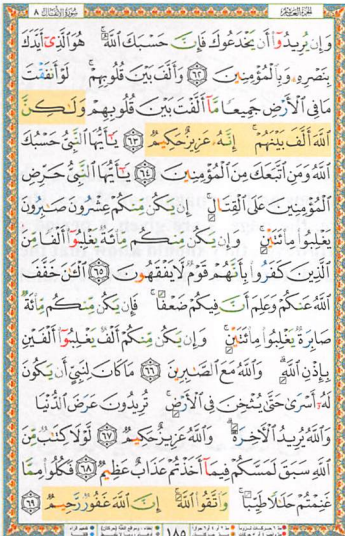 الجزء العاشر سورة الأنفال ٨
وَإِن يُرِيدُوٓاْ أَن يَخۡدَعُوكَ فَإِنَّ حَسۡبَكَ ٱللَّهُۚ هُوَ ٱلَّذِيٓ أَيَّدَكَ
بِنَصۡرِهِۦ وَبِٱلۡمُؤۡمِنِينَ ٦٢ وَأَلَّفَ بَيۡنَ قُلُوبِهِمۡۚ لَوۡ أَنفَقۡتَ
مَا فِي ٱلۡأَرۡضِ جَمِيعٗا مَّآ أَلَّفۡتَ بَيۡنَ قُلُوبِهِمۡ وَلَٰكِنَّ
ٱللَّهَ أَلَّفَ بَيۡنَهُمۡۚ إِنَّهُۥ عَزِيزٌ حَكِيمٞ ٦٣ يَٰٓأَيُّهَا ٱلنَّبِيُّ حَسۡبُكَ
ٱللَّهُ وَمَنِ ٱتَّبَعَكَ مِنَ ٱلۡمُؤۡمِنِينَ ٦٤ يَٰٓأَيُّهَا ٱلنَّبِيُّ حَرِّضِ
ٱلۡمُؤۡمِنِينَ عَلَى ٱلۡقِتَالِۚ إِن يَكُن مِّنكُمۡ عِشۡرُونَ صَٰبِرُونَ
يَغۡلِبُواْ مِاْئَتَيۡنِۚ وَإِن يَكُن مِّنكُم مِّاْئَةٞ يَغۡلِبُوٓاْ أَلۡفٗا مِّنَ
ٱلَّذِينَ كَفَرُواْ بِأَنَّهُمۡ قَوۡمٞ لَّا يَفۡقَهُونَ ٦٥ ٱلۡـَٰٔنَ خَفَّفَ
ٱللَّهُ عَنكُمۡ وَعَلِمَ أَنَّ فِيكُمۡ ضَعۡفٗاۚ فَإِن يَكُن مِّنكُم مِّاْئَةٞ
صَابِرَةٞ يَغۡلِبُواْ مِاْئَتَيۡنِۚ وَإِن يَكُن مِّنكُمۡ أَلۡفٞ يَغۡلِبُوٓاْ أَلۡفَيۡنِ
بِإِذۡنِ ٱللَّهِۗ وَٱللَّهُ مَعَ ٱلصَّٰبِرِينَ ٦٦ مَا كَانَ لِنَبِيٍّ أَن يَكُونَ
لَهُۥٓ أَسۡرَىٰ حَتَّىٰ يُثۡخِنَ فِي ٱلۡأَرۡضِۚ تُرِيدُونَ عَرَضَ ٱلدُّنۡيَا
وَٱللَّهُ يُرِيدُ ٱلۡأٓخِرَةَۗ وَٱللَّهُ عَزِيزٌ حَكِيمٞ ٦٧ لَّوۡلَا كِتَٰبٞ مِّنَ
ٱللَّهِ سَبَقَ لَمَسَّكُمۡ فِيمَآ أَخَذۡتُمۡ عَذَابٌ عَظِيمٞ ٦٨ فَكُلُواْ مِمَّا
غَنِمۡتُمۡ حَلَٰلٗا طَيِّبٗاۚ وَٱتَّقُواْ ٱللَّهَۚ إِنَّ ٱللَّهَ غَفُورٞ رَّحِيمٞ ٦٩
١٨٥